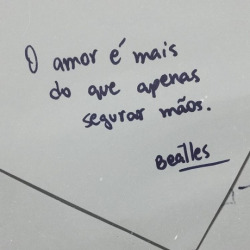 O amor é mais
do que apenas
segurar mãos.
Beatles